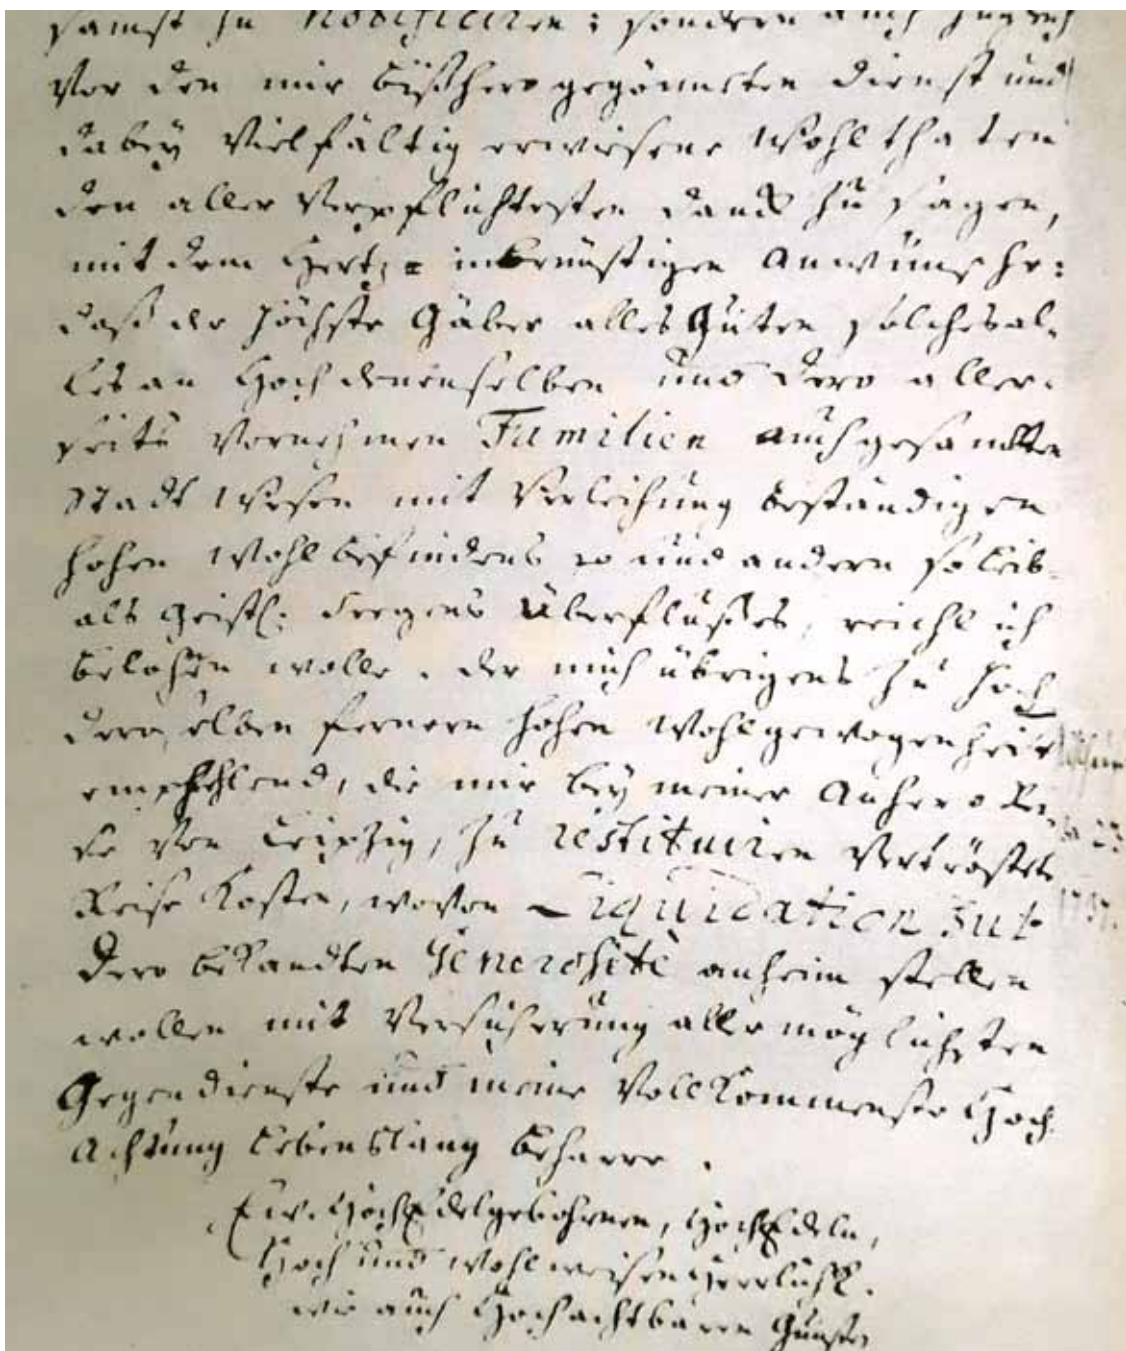 samst zu notificiren: sondern auch zugleich
vor den mir bißhero gegönneten Dienst und
dabey Vielfältig erwiesene Wohlthaten
den aller Verpflichtesten Danck zu sagen,
mit dem Hertz = inbrünstigen Anwünsche:
daß der höchste Gäber alles Guten solches al-
les an Hoch denenselben und Dero aller-
seits Vornehmen Familien auch gesamtten
Stadt Wesen mit Verleihung beständigen
hohen Wohlbefindens und andern so leib-
als Geistl: Seegens Überflußes, reichlich
belohnen wolle. der mich übrigens zu Hoch
deroselben fernern hohen Wohlgewogenheit
empfehlend, die mir bey meiner Anhero Rei-
se von Leipzig, zu restituiren Vertröstete
Reise Kosten, wovon Liquidation
Dero bekandten Generosité anheim stellen
wollen mit Versicherung aller möglichsten
Gegendienste und meine Vollkommenste Hoch
Achtung Lebenslang beharre.
Ew. HochEdelgebohrnen, HochEdeln,
Hoch und Wohlweisen Herrlichk.
wie auch Hochachtbaren Gunsten